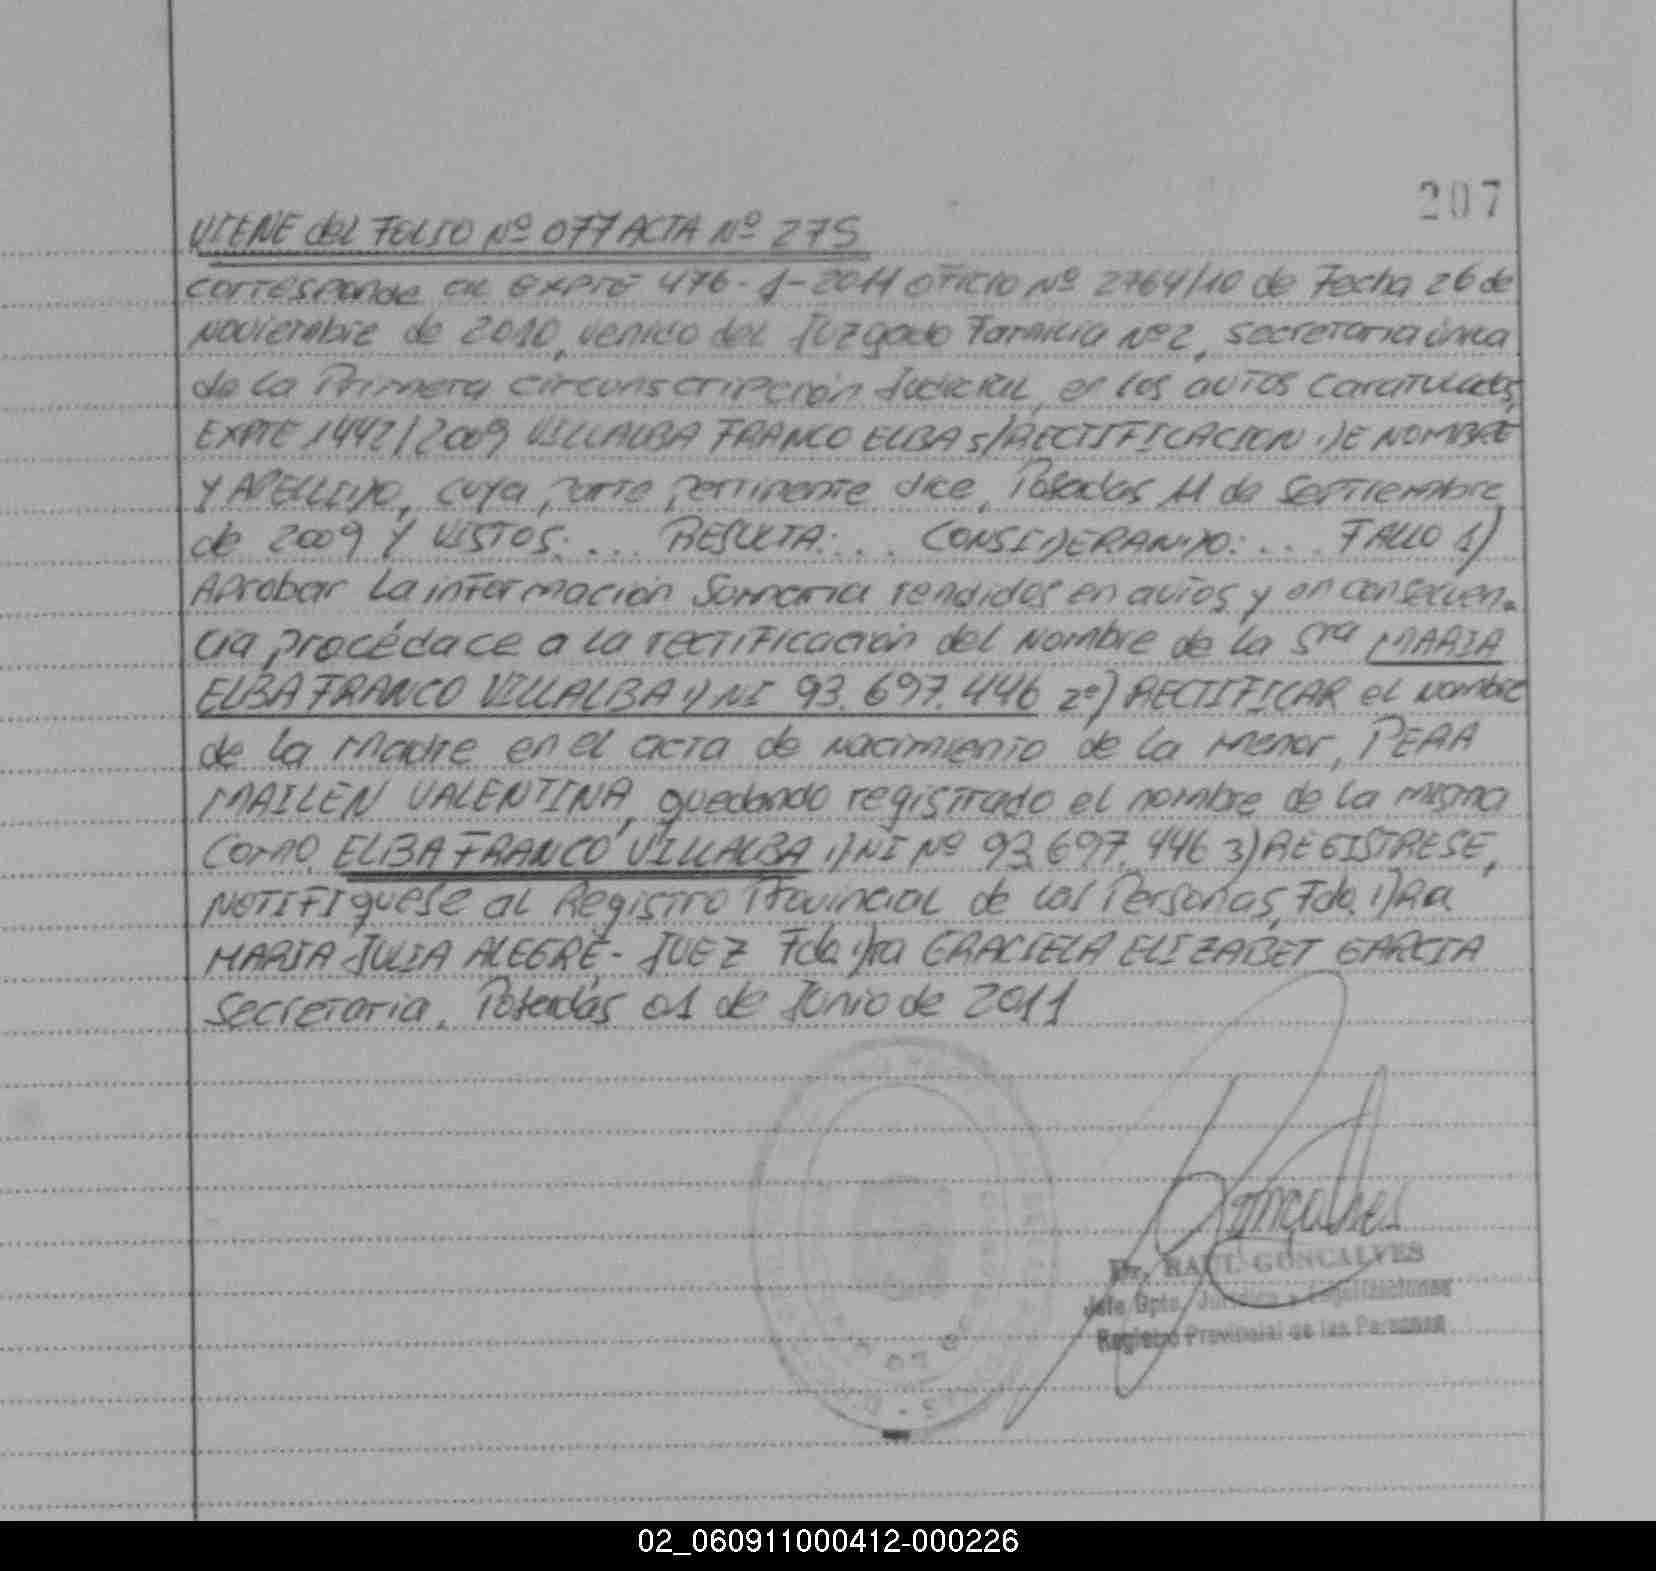 207
VIENE del FOLIO Nº 077 ACTA Nº 275
corresponde al EXPTE 476-1-2011 OFICIO Nº 2764/10 de Fecha 26 de
Noviembre de 2010, venido del Juzgado Familia Nº 2, secretaria única
de la Primera circunscripción Judicial, en los autos caratulados,
EXPTE 1442/2009 VILLALBA FRANCO ELBA s/RECTIFICACION DE NOMBRE
Y APELLIDO, cuya parte pertinente dice, Posadas 11 de Septiembre
de 2009 Y VISTOS: ... RESULTA: ... CONSIDERANDO: ... FALLO 1)
Aprobar la información Sumaria rendidos en autos y en consecuen-
cia procédace a la rectificación del Nombre de la Sra MARIA
ELBA FRANCO VILLALBA DNI 93.697.446 2º) RECTIFICAR el nombre
de la Madre en el acta de nacimiento de la Menor,
MAILEN VALENTINA, quedando registrado el nombre de la misma
Como ELBA FRANCO VILLALBA DNI Nº 93.697.446 3) REGISTRESE,
NOTIFIquese al Registro Provincial de las Personas, Fdo. Dra
MARIA JULIA ALEGRE - JUEZ Fdo Dra GRACIELA ELIZABET GARCIA
Secretaria. Posadas 01 de Junio de 2011
Gonçalves
Dr. RAUL GONCALVES
Jefe Dpto. Jurídico y Legalizaciones
Registro Provincial de las Personas
02_060911000412-000226